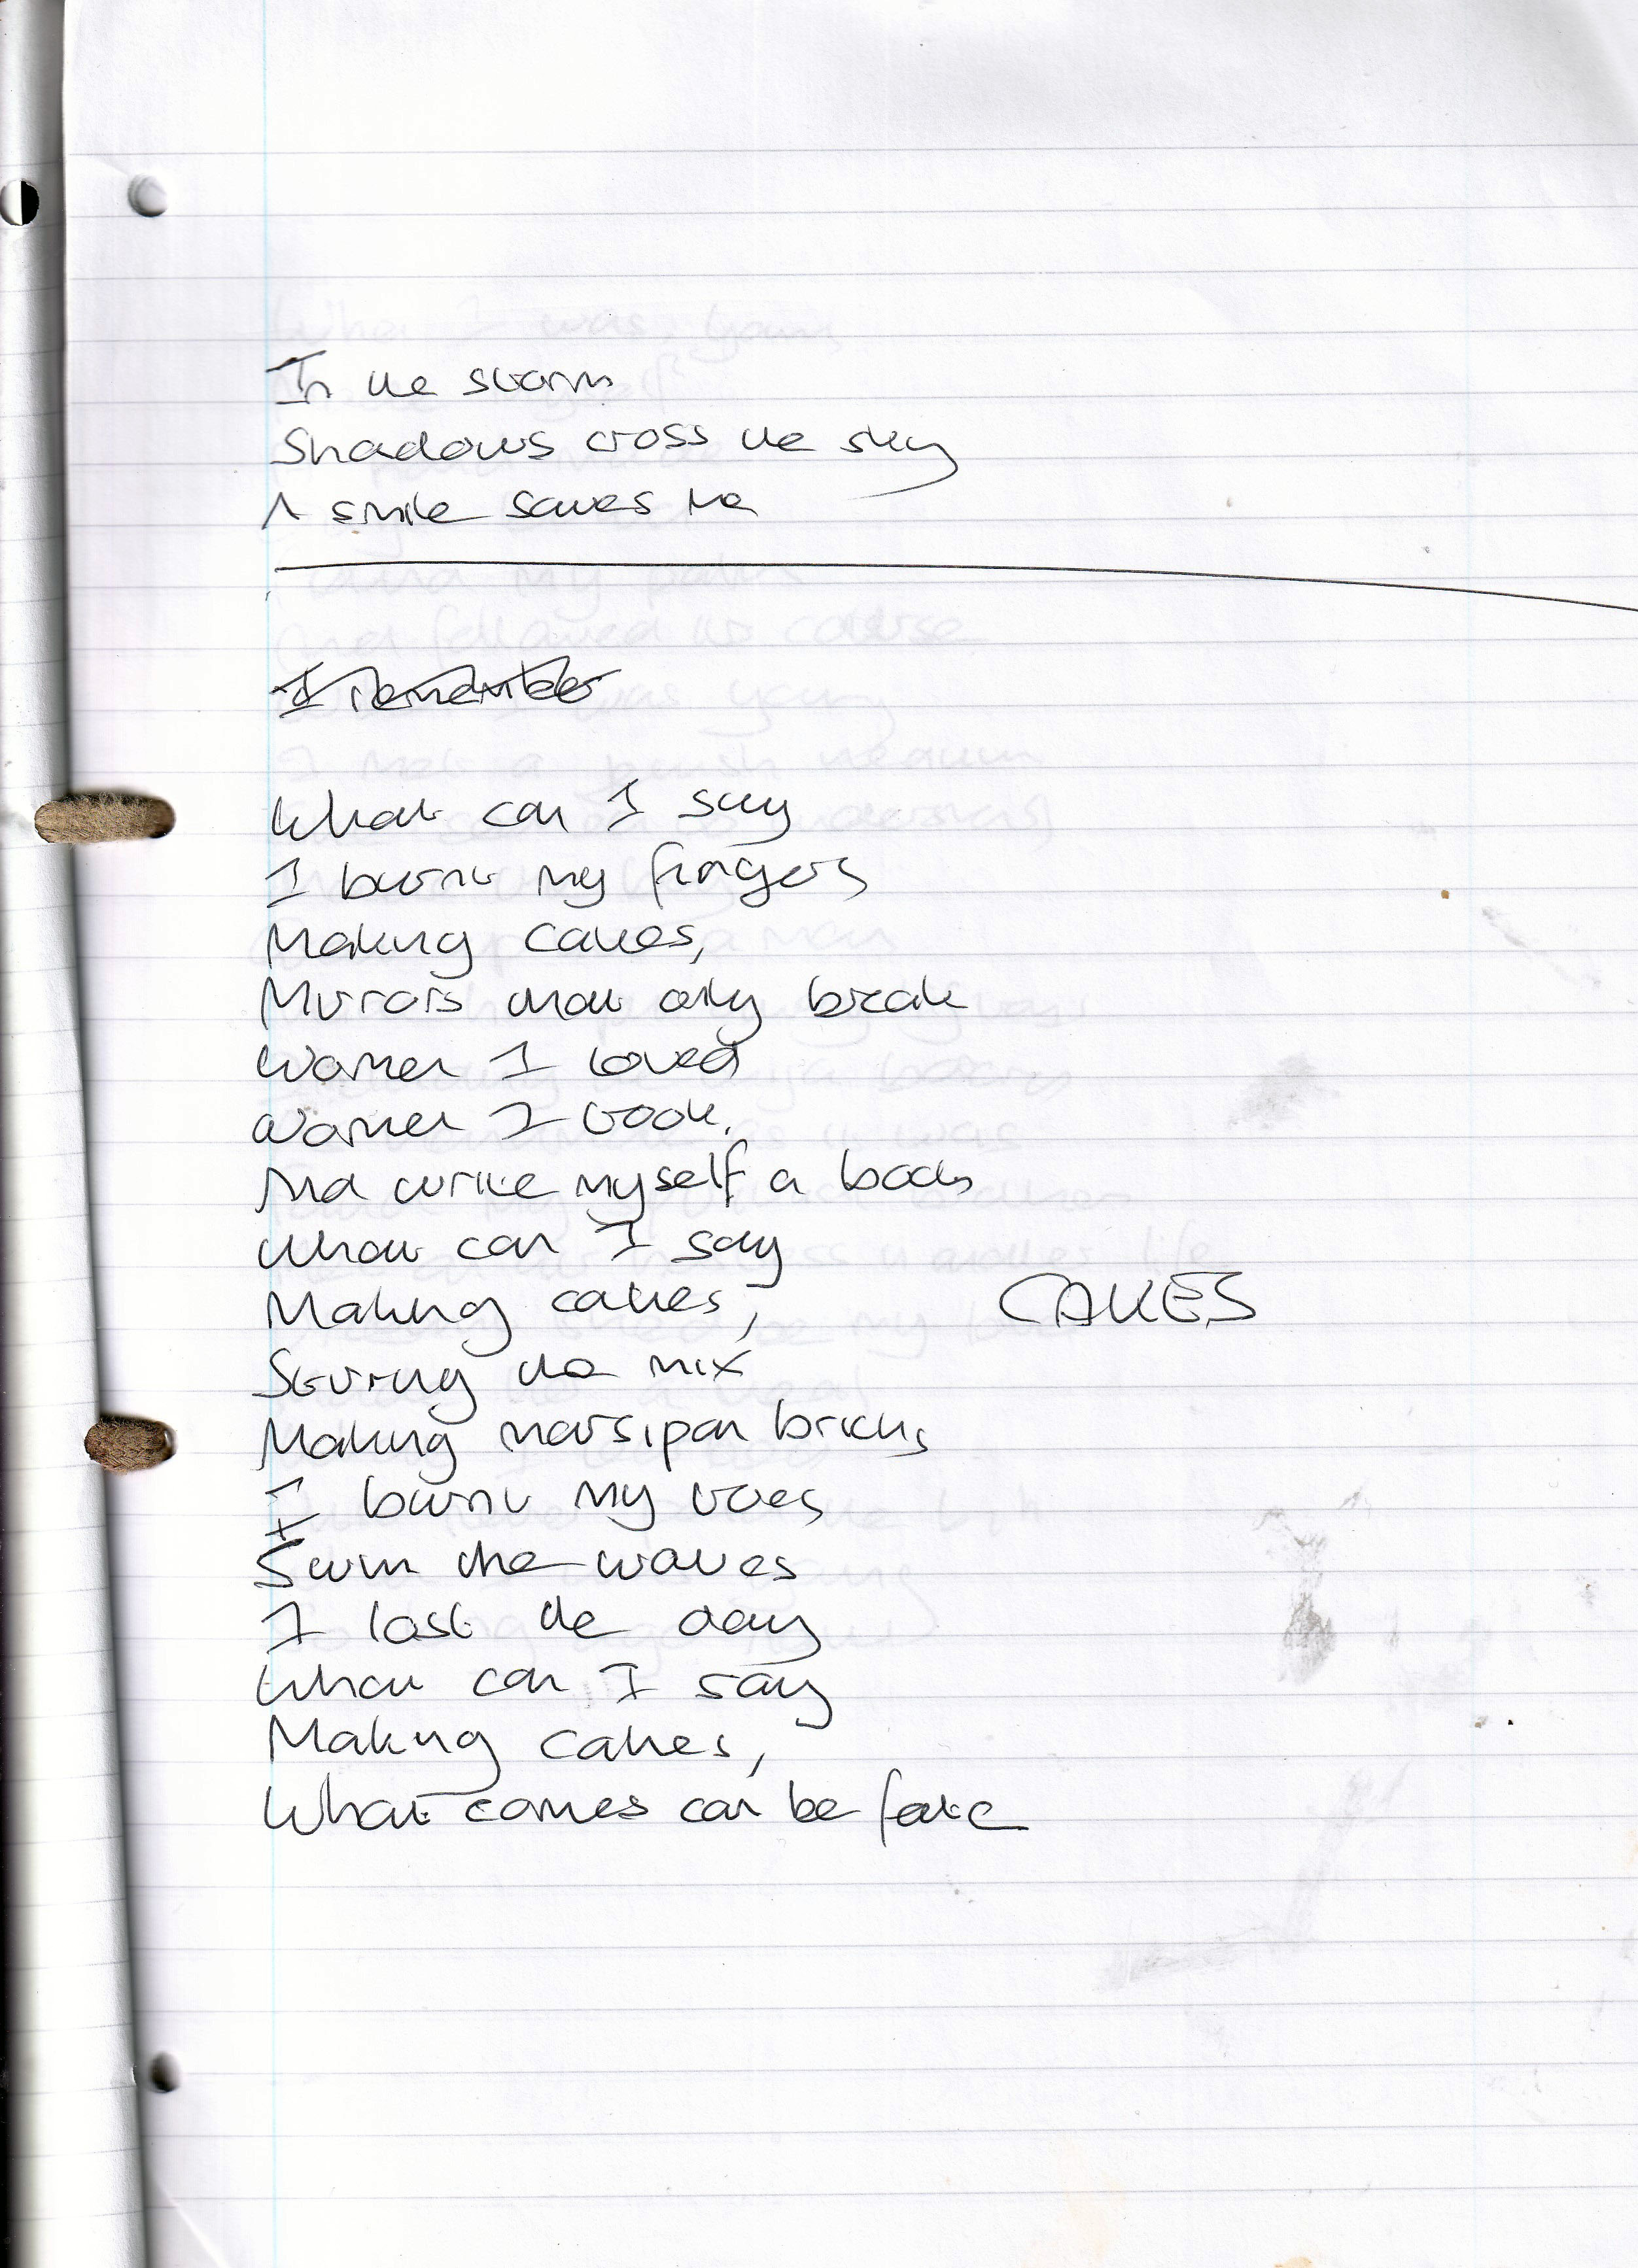 In the storm
Shadows cross the sky
A smile saves me
I remember
What can I say
I burnt my fingers
Making cakes,
Mirrors that only break
Women I loved
Women I took.
And write myself a book
What can I say
Making cakes,
CAKES
Stirring the mix
Making marsipan bricks
I burnt my toes
Swim the waves
I lost the day
What can I say
Making cakes,
What comes can be fate